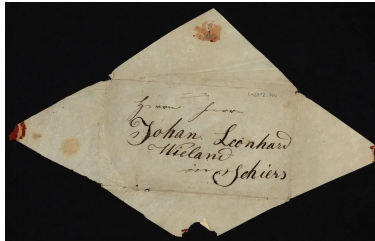 Herrn Herrn
Johan Leonhard
Wieland
in Schiers